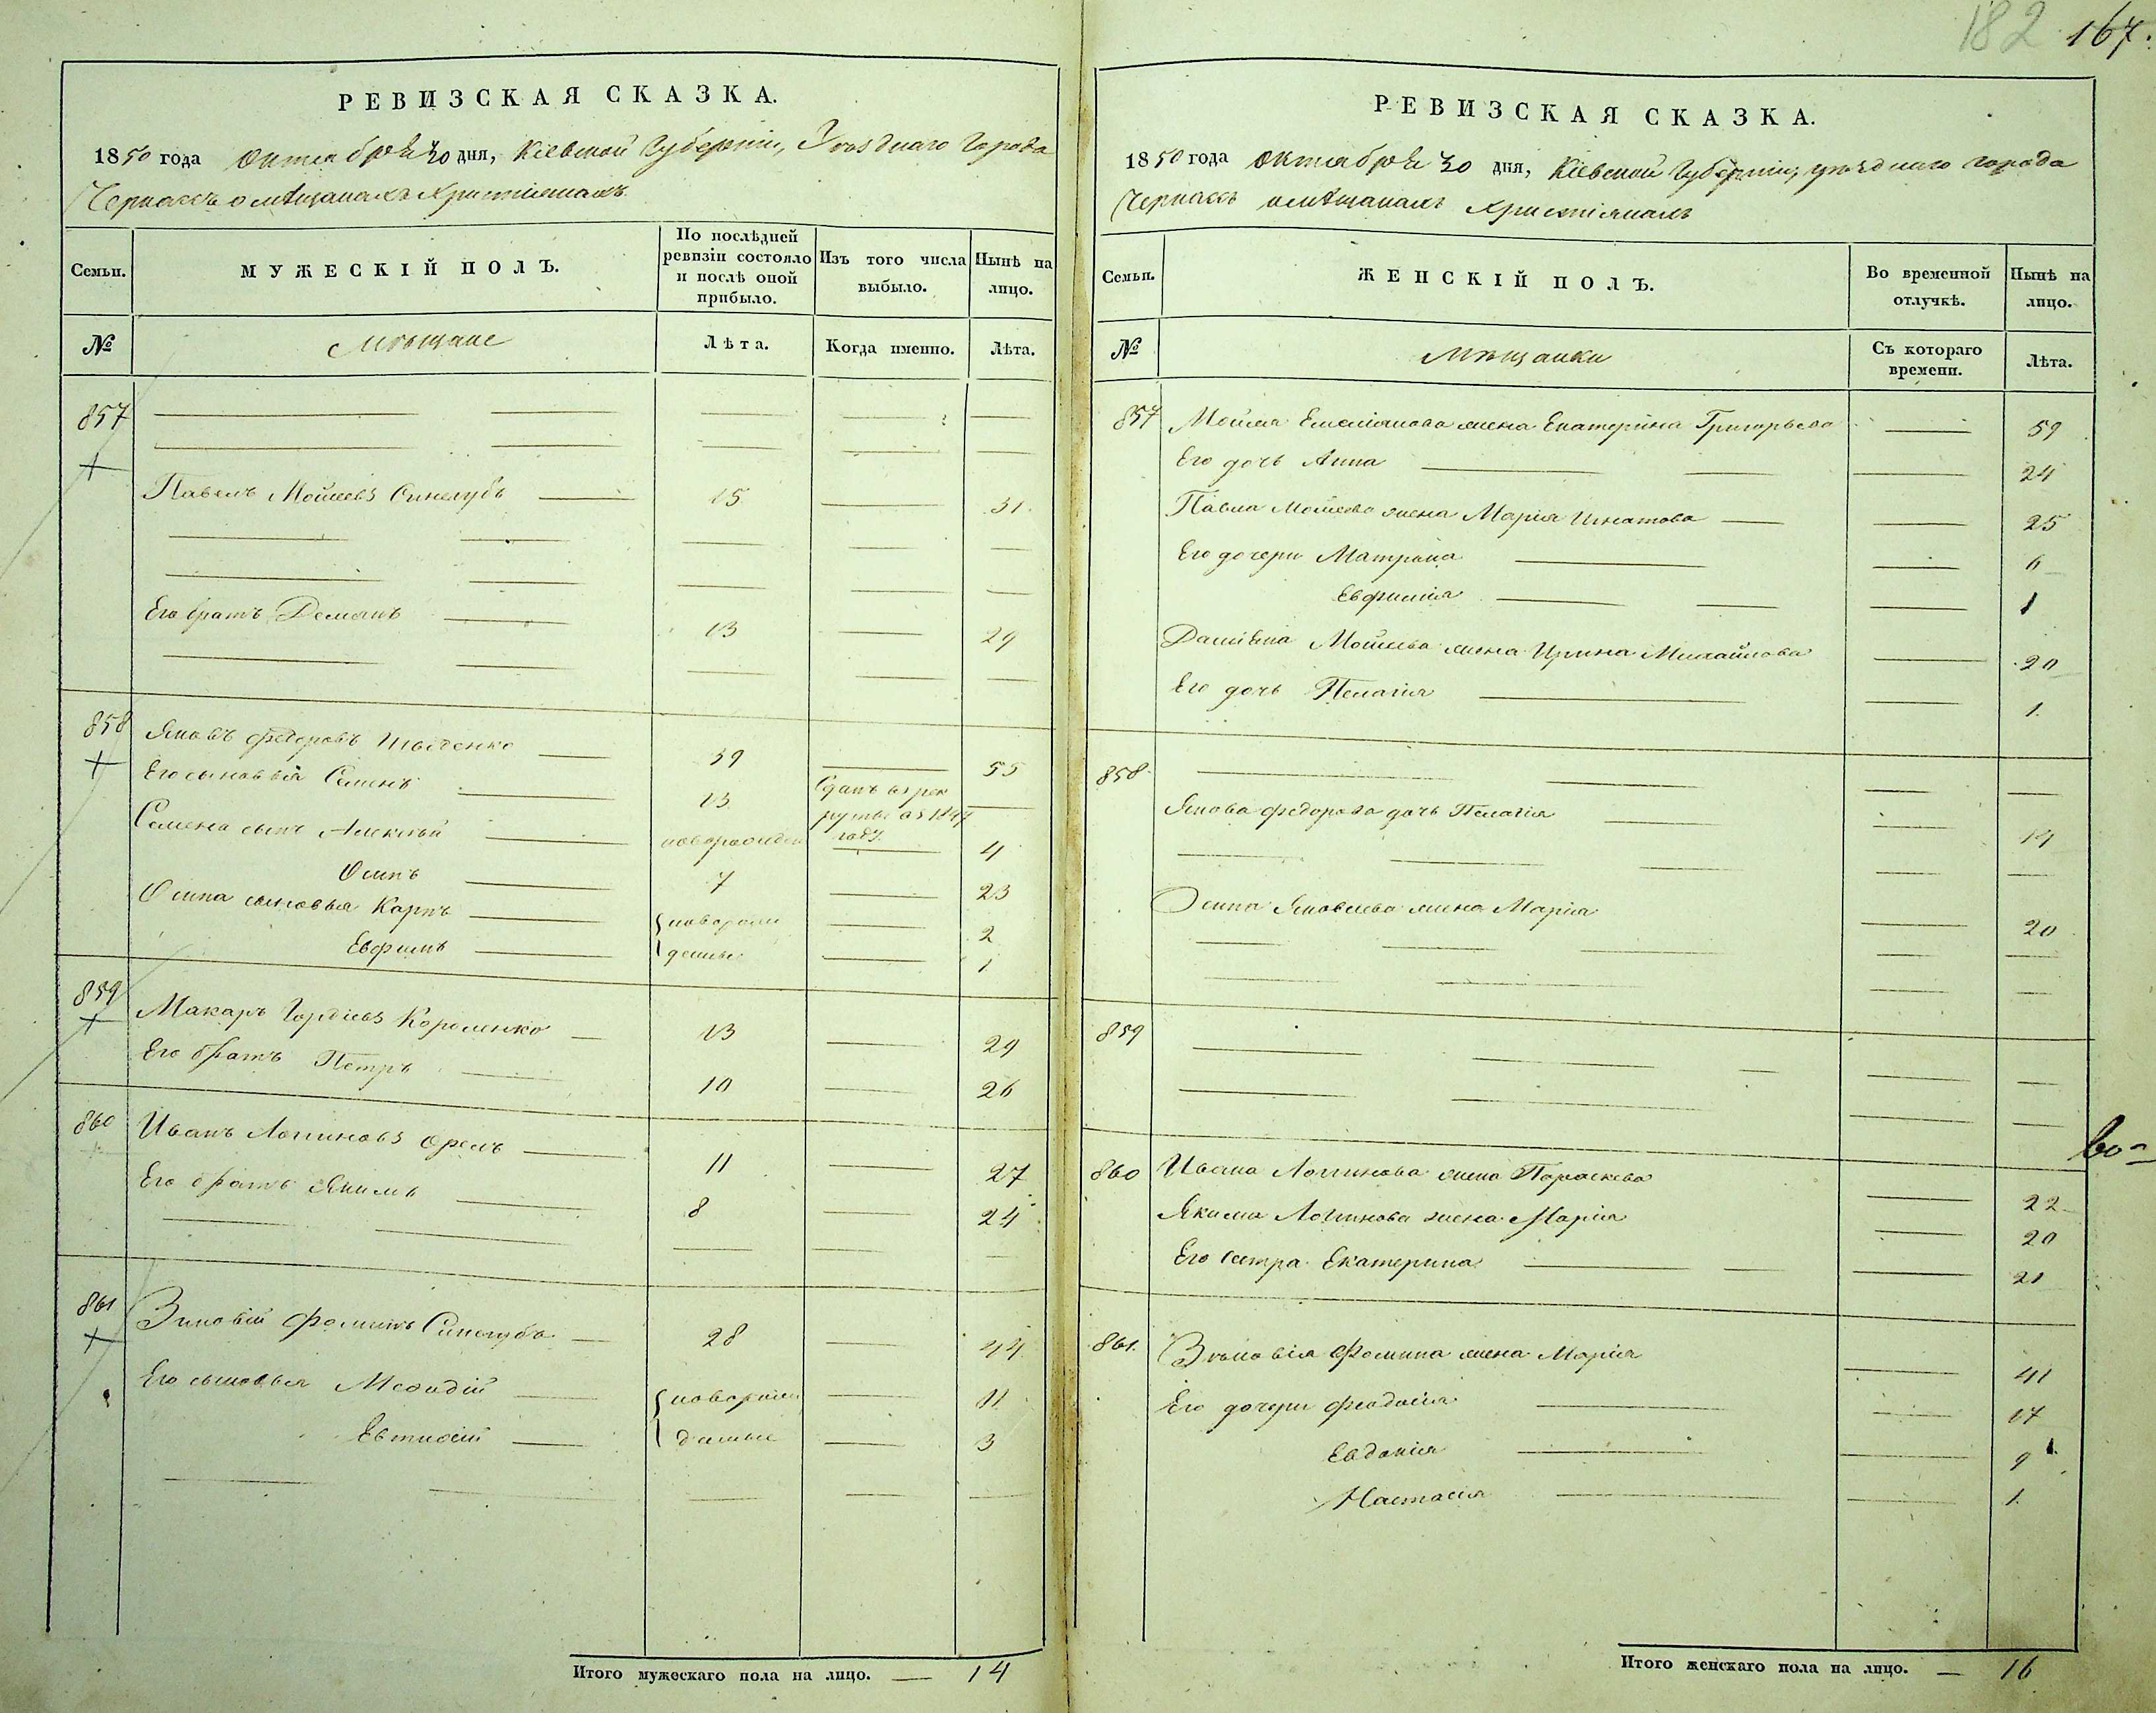 182 167.
РЕВИЗСКАЯ СКАЗКА.
1850 года Октября 30 дня, Кіевской Губерніи, Уѣзднаго Города
Черкассъ о мѣщанахъ Христіянахъ.
Семьи. МУЖЕСКІЙ ПОЛЪ. По послѣдней ревизіи состояло и послѣ оной прибыло. Изъ того числа выбыло. Нынѣ на лицо.
№ Мѣщане Лѣта. Когда именно. Лѣта.
857
Павелъ Мойсеевъ Синегубъ 15 31.
Его братъ Демянъ 13 29
858 Яковъ Федоровъ Шведенко 39 55
Его сыновья Семенъ 13 Сданъ въ рекруты въ 1847 году.
Семена сынъ Алексѣй новорожден 4
Осипъ 7 23
Осипа сыновья Карпъ новорож 2
Евфимъ денные 1
859 Макаръ Гордіевъ Короленко 13 29
Его братъ Петръ 10 26
860 Иванъ Логиновъ Орелъ 11 27
Его братъ Якимъ 8 24
861 Зиновій Фоминъ Синегубъ 28 44
Его сыновья Мефодій новорож 11
Евтихій денные 3
Итого мужескаго пола на лицо. — 14
РЕВИЗСКАЯ СКАЗКА.
1850 года Октября 30 дня, Кіевской Губерніи, уѣзднаго города
Черкассъ о мѣщанахъ Христіянахъ
Семьи. ЖЕНСКІЙ ПОЛЪ. Во временной отлучкѣ. Нынѣ на лицо.
№ Мѣщанки Съ котораго времени. Лѣта.
857 Мойсея Емеліянова жена Екатерина Григорьева 59
Его дочь Анна 24
Павла Мойсеева жена Марія Игнатова 25
Его дочери Матрона 6
Евфимія 1
Даміяна Мойсеева жена Ирина Михайлова 20
Его дочь Пелагія 1.
858.
Якова Федорова дочь Пелагія 14
Осипа Яковлева жена Марія 20
859
860 Ивана Логинова жена Параскева 22
Якима Логинова жена Марія 20
Его сестра Екатерина 21
861. Зѣновія Фомина жена Марія 41
Его дочери Феодосія 17
Евдокія 9
Настасія 1.
Итого женскаго пола на лицо. — 16